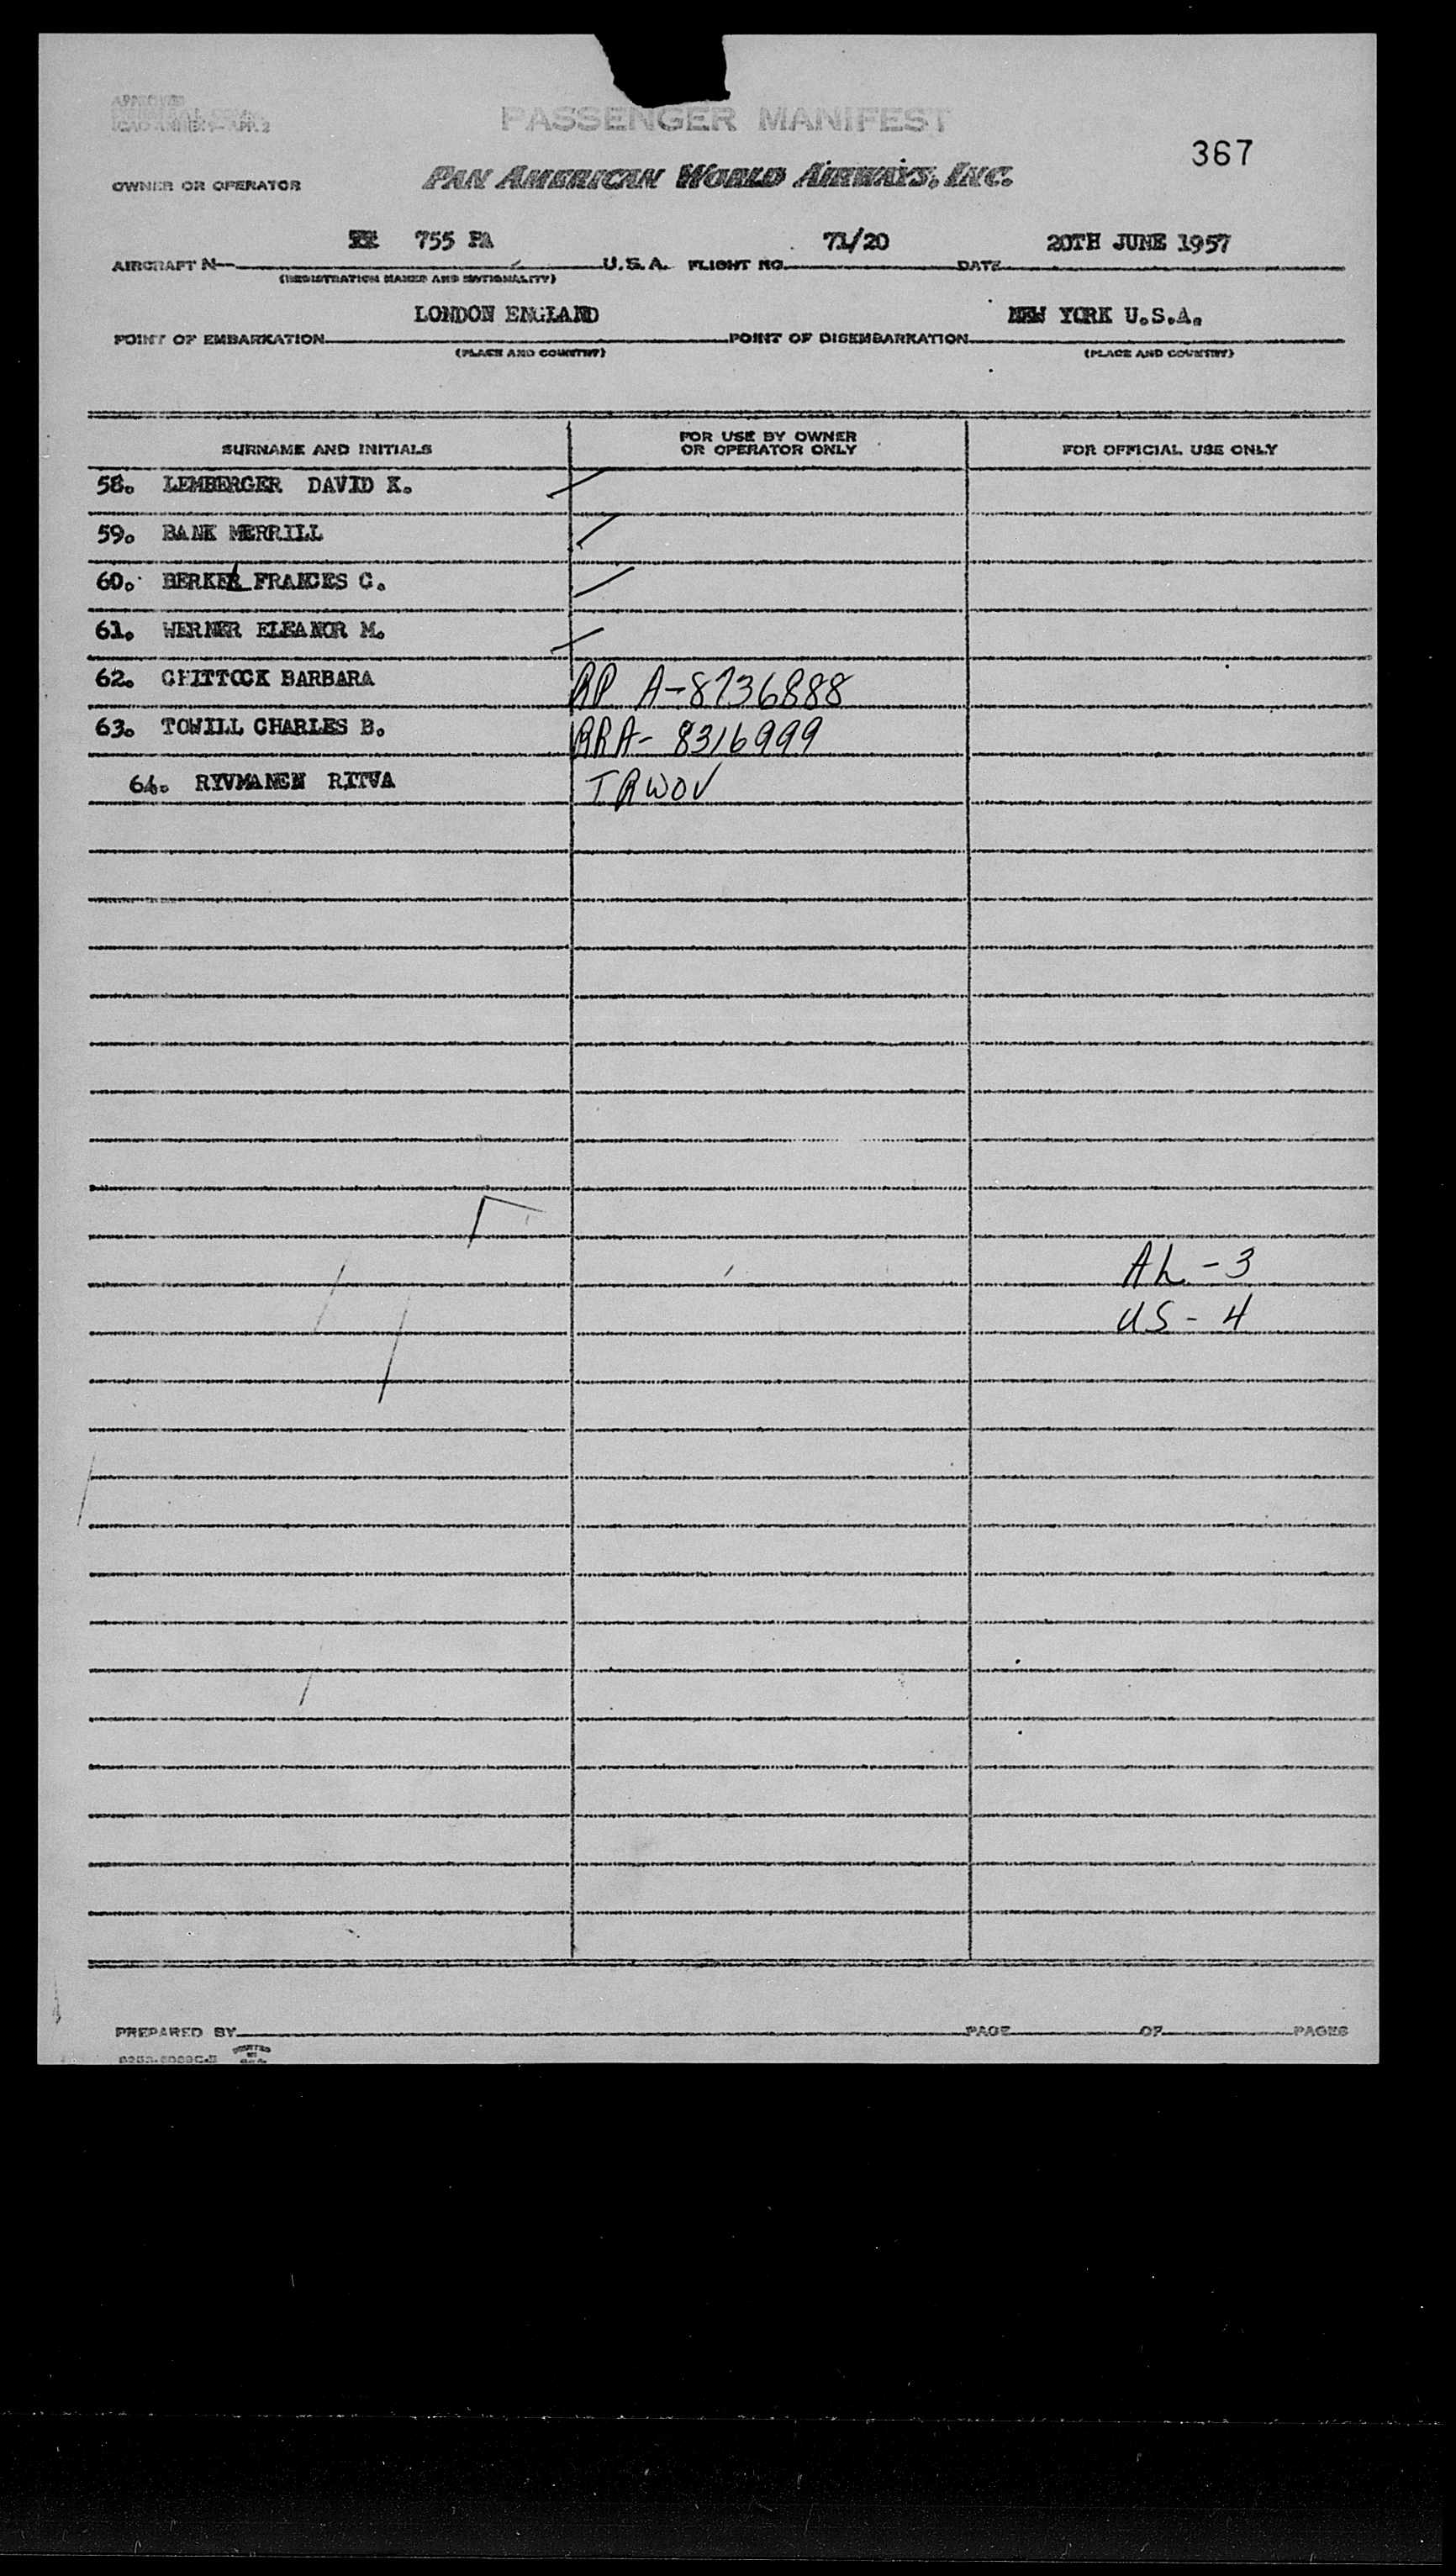 APPROVED
ICAO ANNEX 9—APP. 2
PASSENGER MANIFEST
367
OWNER OR OPERATOR PAN AMERICAN WORLD AIRWAYS, INC.
755 PA 71/20 20TH JUNE 1957
AIRCRAFT N— U.S.A. FLIGHT NO. DATE
(REGISTRATION MARKS AND NATIONALITY)
LONDON ENGLAND NEW YORK U.S.A.
POINT OF EMBARKATION POINT OF DISEMBARKATION
(PLACE AND COUNTRY) (PLACE AND COUNTRY)
SURNAME AND INITIALS FOR USE BY OWNER OR OPERATOR ONLY FOR OFFICIAL USE ONLY
58. LEMBERGER DAVID K.
59. BANK MERRILL
60. FRANCES C.
61. WERNER ELEANOR M.
62. CHITTOCK BARBARA RP A-8736888
63. TOWILL CHARLES B. RRA- 8316999
64. RYVMANEN RITVA TRWOV
AL - 3
US - 4
PREPARED BY PAGE OF PAGES
PRINTED IN U.S.A.